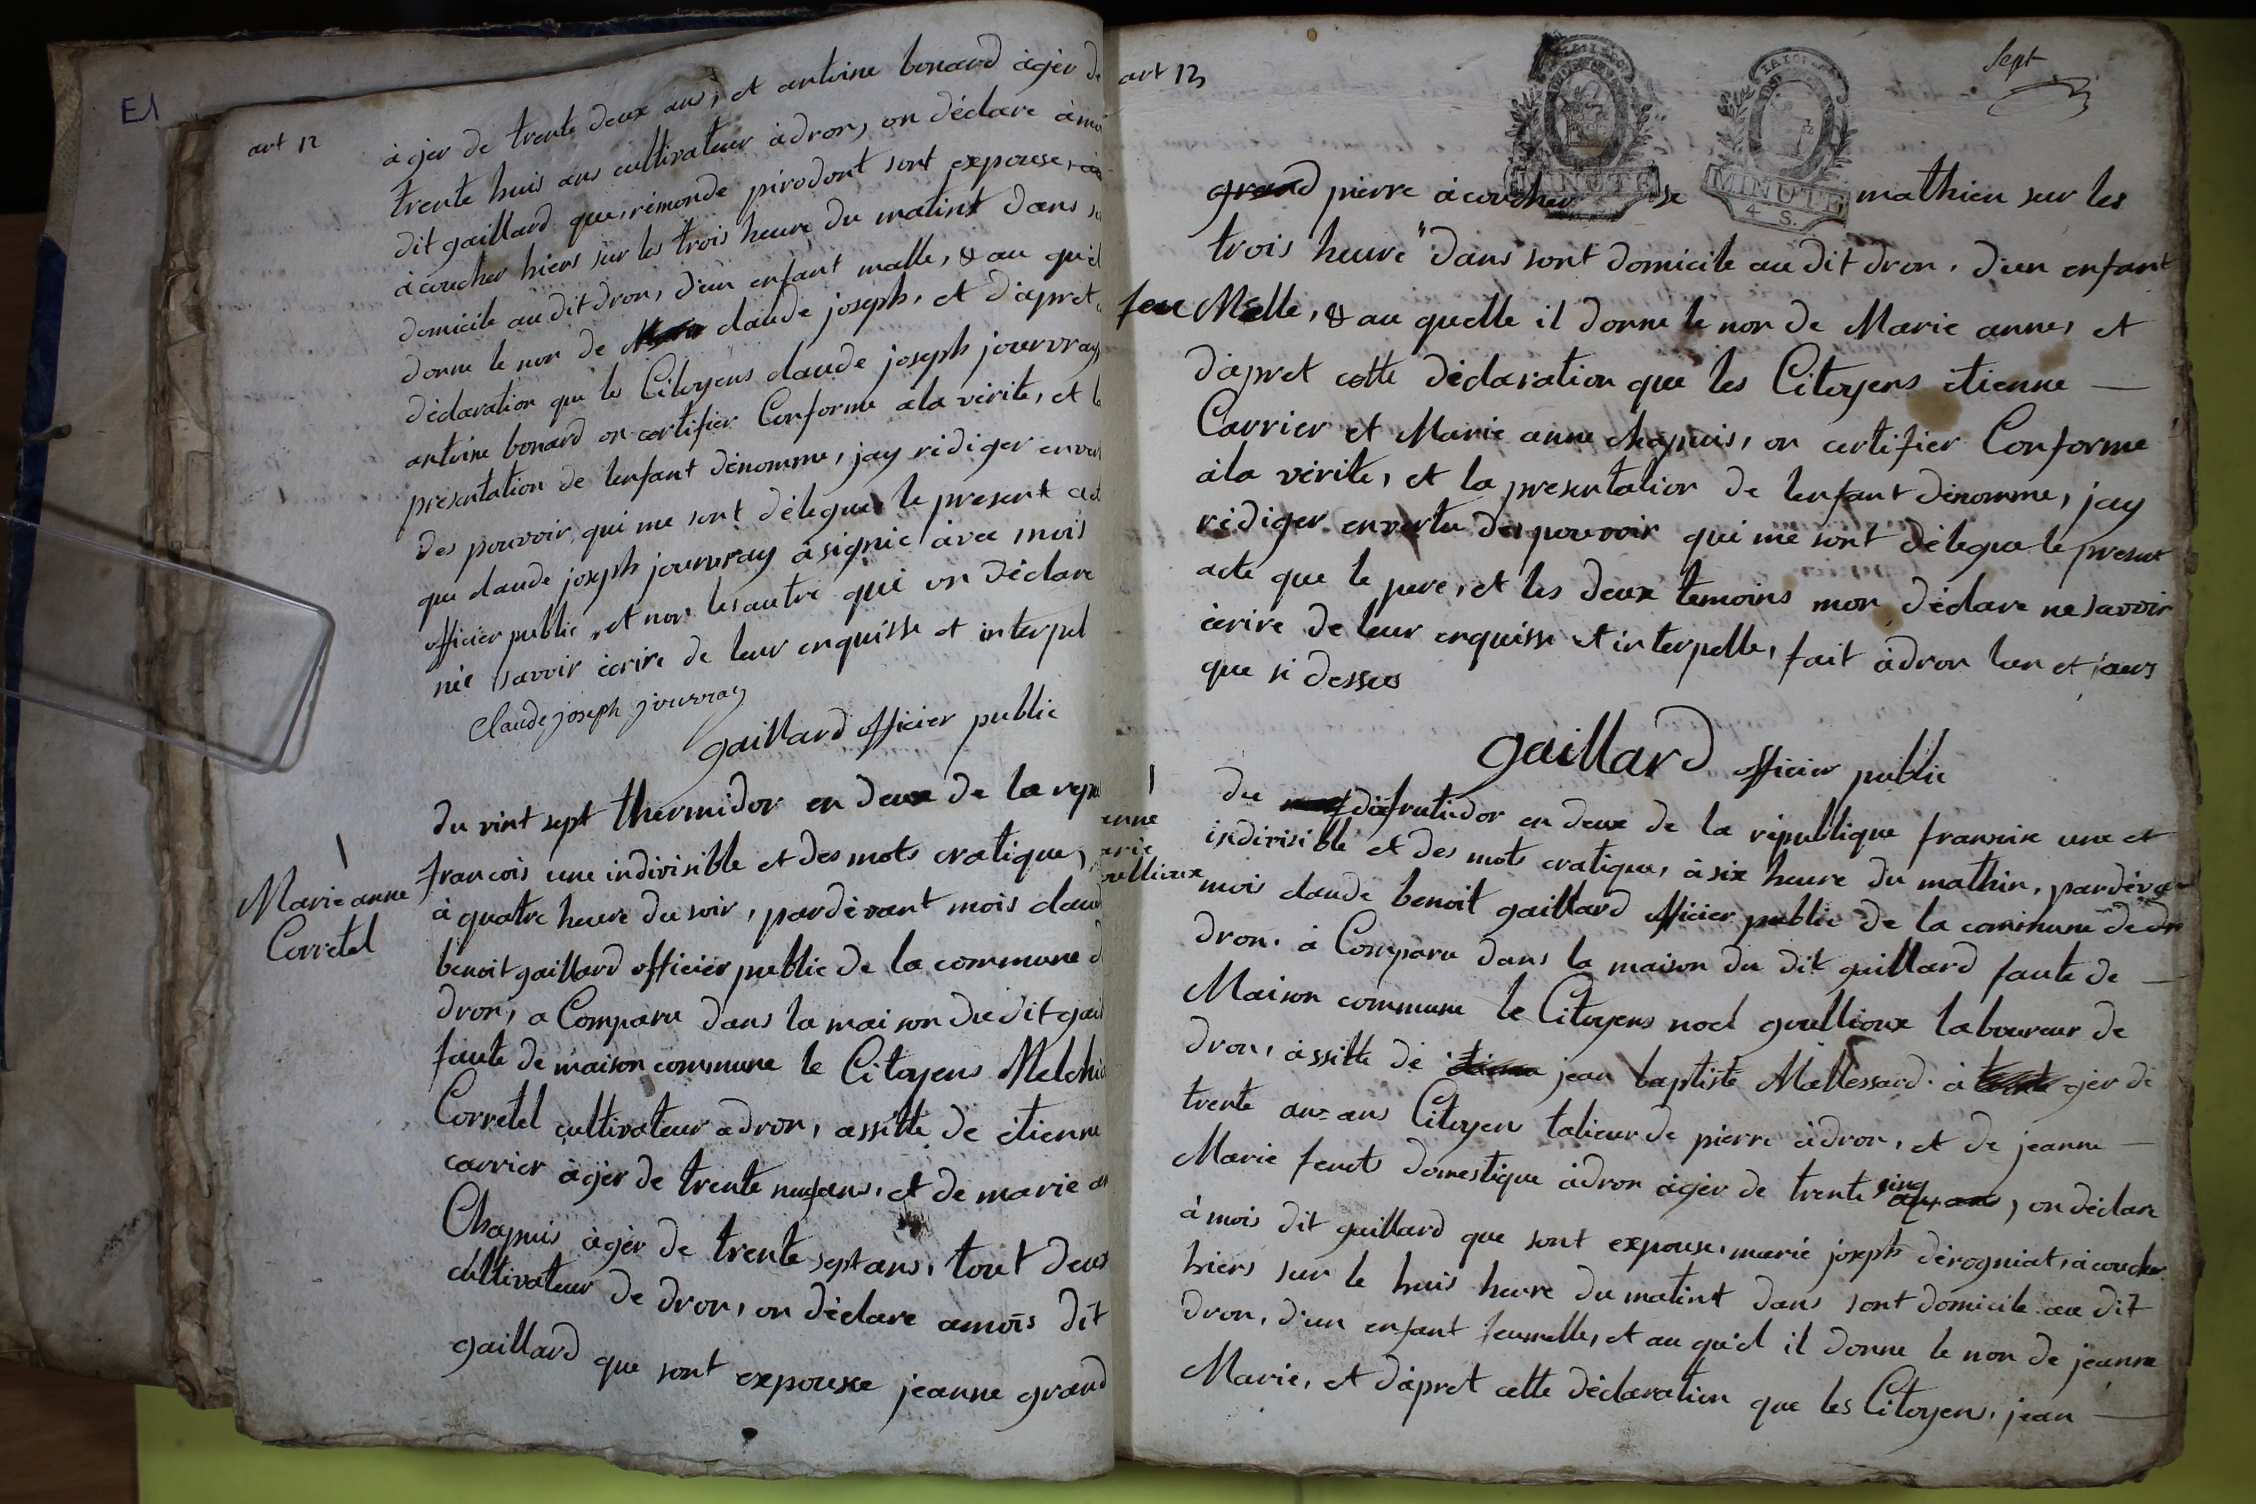 E1
art 12
àger de trente deux ans, et antoine bonard àgér de
trente huis ans cultivateur àdron, on déclare àmoi
dit gaillard que, rémonde pirodont sont expouse, à
àcoucher hiers sur les trois heure du matint dans
domicile au dit dron, d'un enfant malle, & au quél
donne le non de claude joseph, et d'apret
déclaration que les Citoyens claude joseph jourvray
antoine bonard on certifier Conforme ala vérite, et la
présentation de lenfant dénomme, jay rédiger en vert
des pouvoir qui me sont délegué le present act
que claude joseph jourvray àsignie àvec mois
officier public, et non les autre qui on déclare
nér savoir écrire de leur enquisse et interpel
Claude joseph jourvray
gaillard officier public
Marie anne
Corretel
du vint sept thermidor en deux de la repu
francois une indivisible et des mots cratique,
à quatre heure du soir, pardévant mois claud
benoit gaillard officiér public de la commune d
dron, a Comparu dans la maison du dit gail
faute de maison commune le Citoyens Melchi
Corretel cultivateur adron, assitte de étienne
carrier àgér de trente neuf ans, et de marie an
Chapuis àgér de trente sept ans, tout deux
cultivateur de dron, on déclare amois dit
gaillard que sont expouse jeanne grand
art 13
Sept
MINUTE
MINUTE
4 S.
grand pierre àcoucher se mathieu sur les
trois heure dans sont domicile au dit dron, d'un enfant
feu Melle, & au quelle il donne le non de Marie anne, et
d'apret cette déclaration que les Citoyens étienne —
Carrier et Marie anne chapuis, on certifier Conforme
àla vérite, et la presentation de lenfant dénomme, jay
rédiger en vertu des pouvoir qui me sont délegue le present
acte que le pere, et les deux temoins mon déclare ne savoir
écrire de leur enquisse et interpelle, fait àdron lan et jours
que si dessus
gaillard officier public
enne
arie
oullioux
du dix frutidor en deux de la république fransise une et
indivisible et des mots cratique, à six heure du mathin, pardévan
mois claude benoit gaillard officier public de la commune de
dron, à Comparu dans la maison du dit gaillard faute de —
Maison commune le Citoyens noel goullioux laboureur de
dron, àssitte de jean baptiste Mallessard, à gér de
trente anz ans Citoyen talieur de pierre àdron, et de jeanne —
Marie fenets domestique àdron àgér de trente sinq, on déclare
à mois dit gaillard que sont expouse, marie joseph dérogniat, àcoucher
hiers sur le huis heure du matint dans sont domicile au dit
dron, d'un enfant feumelle, et au quél il donne le non de jeanne
Marie, et d'àpret cette déclaration que les Citoyen, jean —